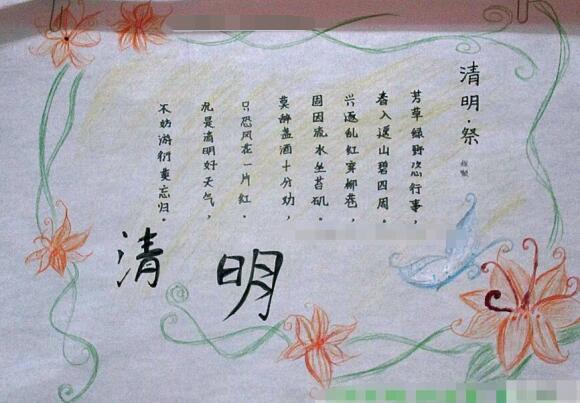 清明·祭
程颢
芳草绿野恣行事，
春入遥山碧四周。
兴逐乱红穿柳巷，
固因流水坐苔矶。
莫辞盏酒十分劝，
只恐风花一片红。
况是清明好天气，
不妨游衍莫忘归。
清明